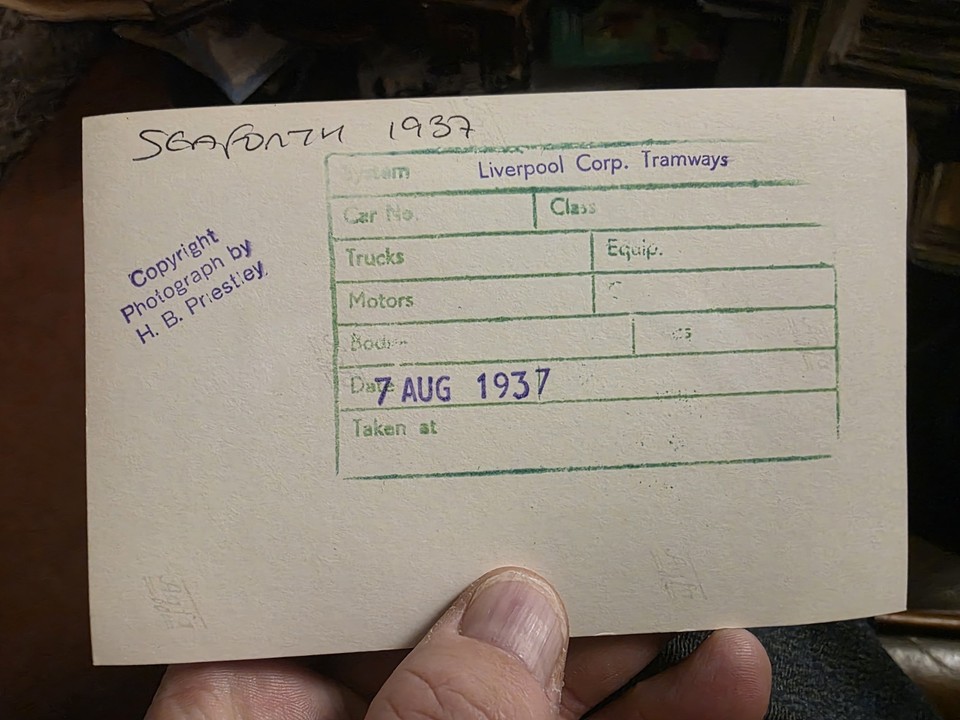 SEAFORTH 1937
System Liverpool Corp. Tramways
Car No. Class
Trucks Equip.
Motors
Date 7 AUG 1937
Taken at
Copyright
Photograph by
H. B. Priestley